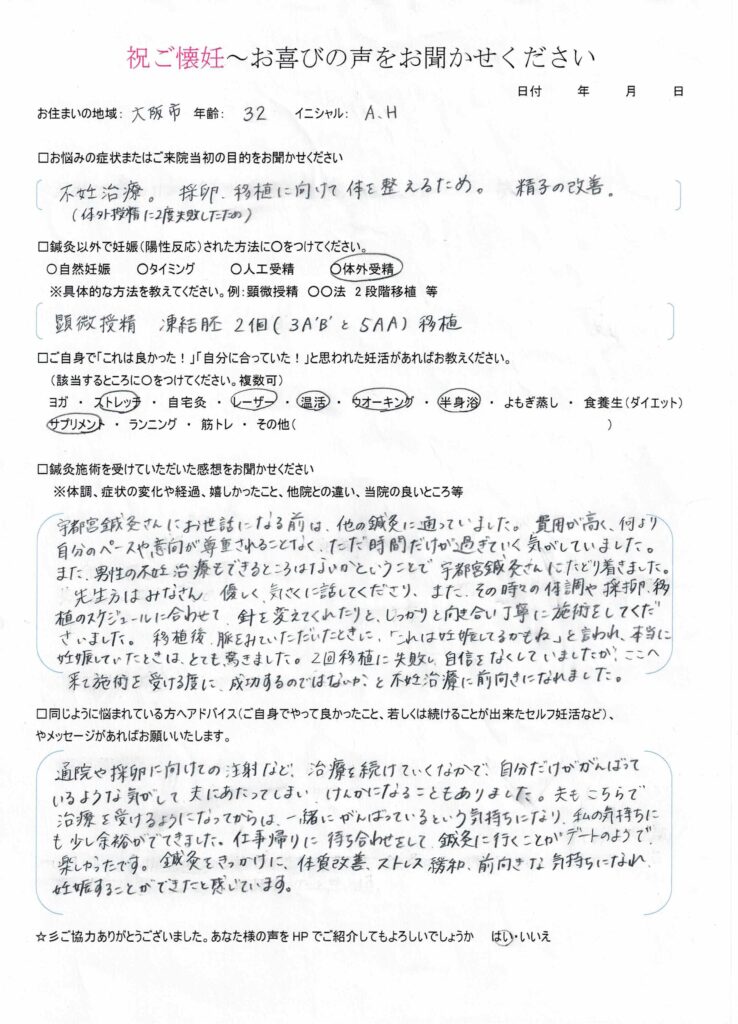 祝ご懐妊～お喜びの声をお聞かせください
日付　　年　　月　　日
お住まいの地域： 大阪市 年齢： 32 イニシャル： A.H
□お悩みの症状またはご来院当初の目的をお聞かせください
不妊治療。 採卵、移植に向けて体を整えるため。 精子の改善。
（体外授精に2度失敗したため）
□鍼灸以外で妊娠（陽性反応）された方法に〇をつけてください。
〇自然妊娠 〇タイミング 〇人工受精 〇体外受精
※具体的な方法を教えてください。例：顕微授精 〇〇法 2段階移植 等
顕微授精 凍結胚 2個（3A'B' と 5AA）移植
□ご自身で「これは良かった！」「自分に合っていた！」と思われた妊活があればお教えください。
（該当するところに〇をつけてください。複数可）
ヨガ ・ ストレッチ ・ 自宅灸 ・ レーザー ・ 温活 ・ ウオーキング ・ 半身浴 ・ よもぎ蒸し ・ 食養生（ダイエット）
サプリメント ・ ランニング ・ 筋トレ ・ その他（　　　　）
□鍼灸施術を受けていただいた感想をお聞かせください
※体調、症状の変化や経過、嬉しかったこと、他院との違い、当院の良いところ等
宇都宮鍼灸さんにお世話になる前は、他の鍼灸に通っていました。 費用が高く、何より
自分のペースや意向が尊重されることなく、ただ時間だけが過ぎていく気がしていました。
また、男性の不妊治療もできるところはないかということで宇都宮鍼灸さんにたどり着きました。
先生方はみなさん 優しく、気さくに話してくださり、また、その時々の体調や採卵、移
植のスケジュールに合わせて、針を変えてくれたりと、しっかりと向き合い丁寧に施術をしてくだ
さいました。 移植後、脈をみていただいたときに、「これは妊娠してるかもね」と言われ、本当に
妊娠していたときは、とても驚きました。2回移植に失敗し、自信をなくしていましたが、ここへ
来て施術を受ける度に、成功するのではないか、と不妊治療に前向きになれました。
□同じように悩まれている方へアドバイス（ご自身でやって良かったこと、若しくは続けることが出来たセルフ妊活など）、
やメッセージがあればお願いいたします。
通院や採卵に向けての注射など、治療を続けていくなかで、自分だけががんばって
いるような気がして、夫にあたってしまい、けんかになることもありました。夫もこちらで
治療を受けるようになってからは、一緒にがんばっているという気持ちになり、私の気持ちに
も少し余裕ができました。仕事帰りに待ち合わせをして、鍼灸に行くことがデートのようで、
楽しかったです。 鍼灸をきっかけに、体質改善、ストレス緩和、前向きな気持ちになれ、
妊娠することができたと感じています。
☆彡ご協力ありがとうございました。あなた様の声をHPでご紹介してもよろしいでしょうか はい・いいえ